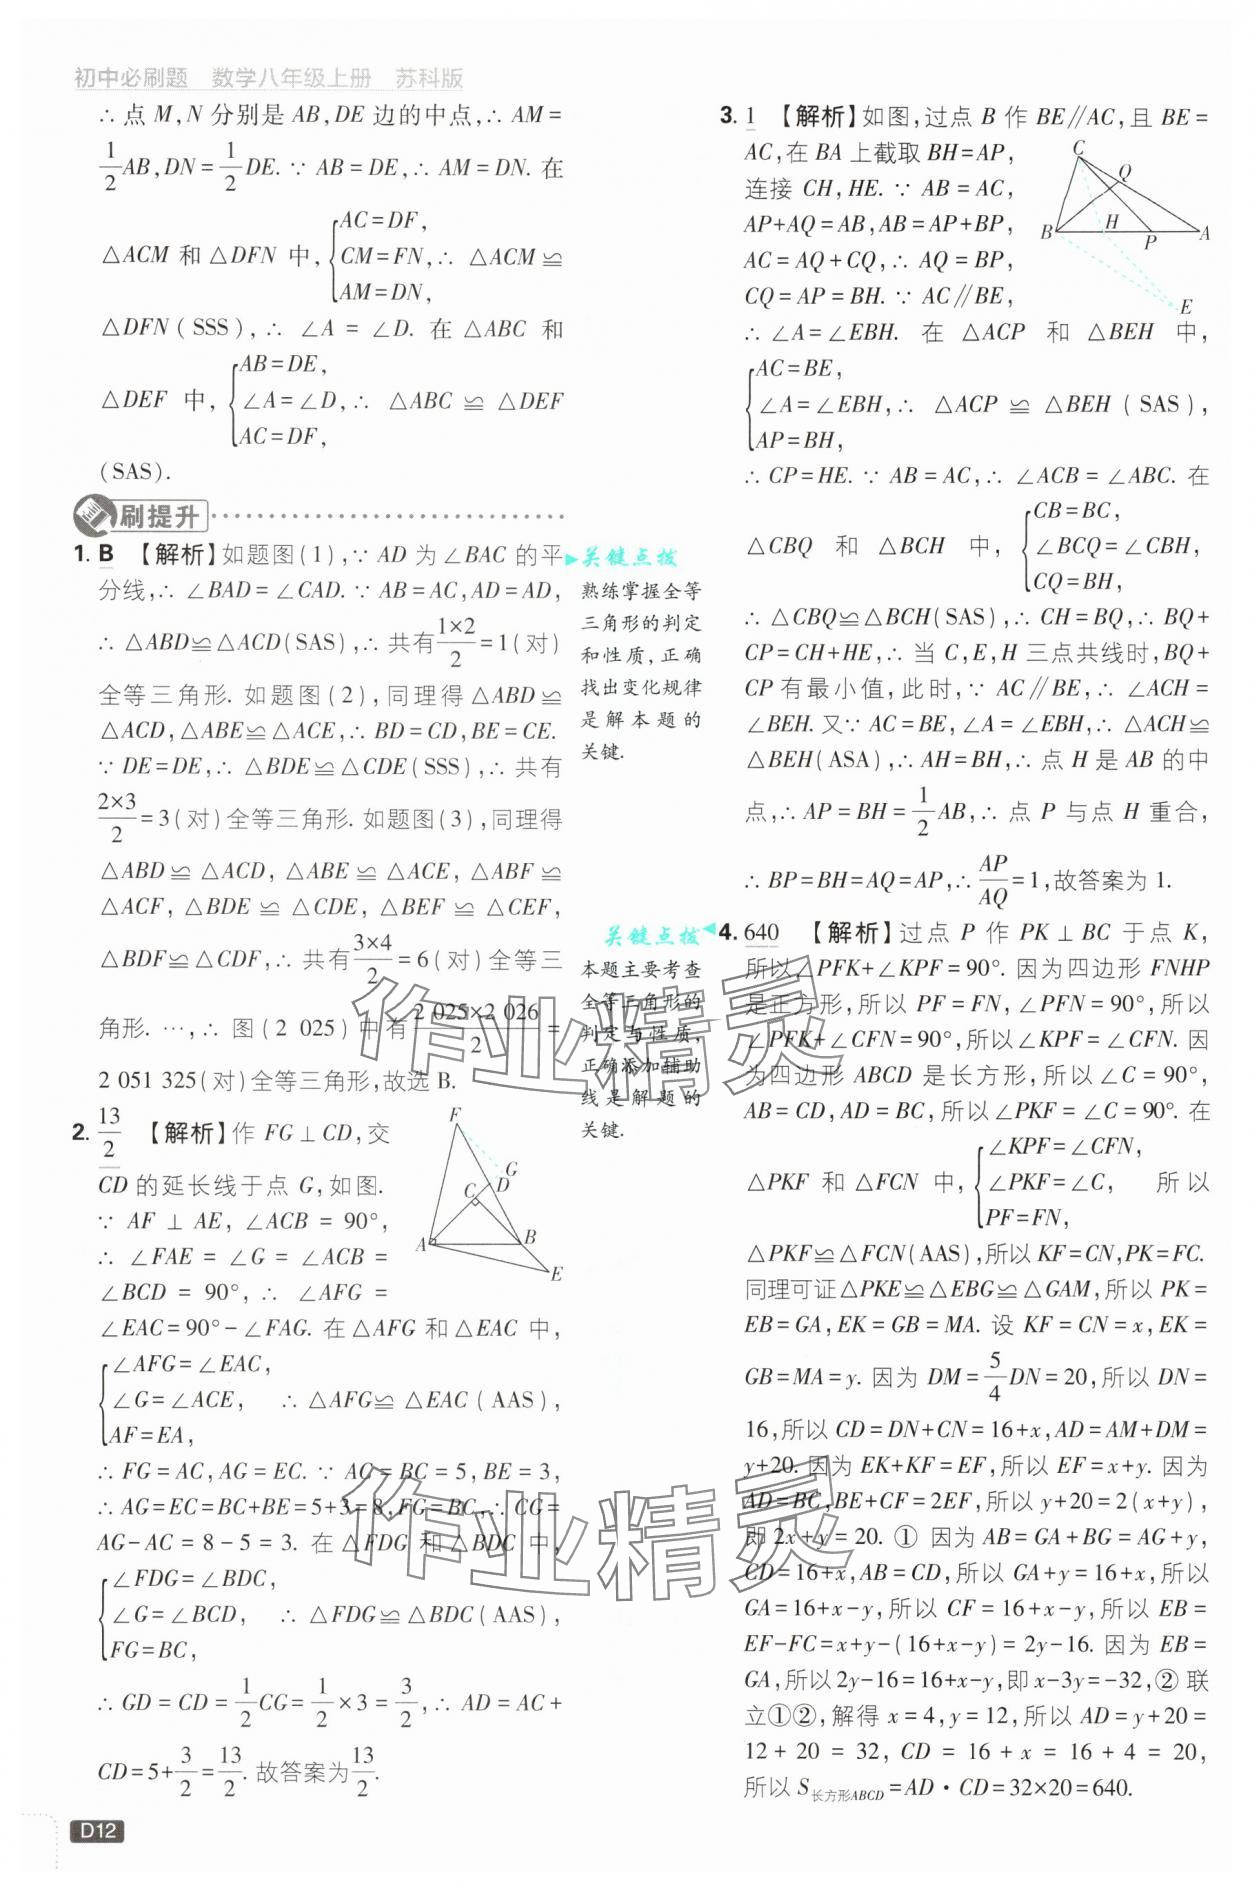 初中必刷题 数学八年级上册 苏科版
∴点M,N分别是AB,DE边的中点,∴AM=
1/2AB,DN=1/2DE.∵AB=DE,∴AM=DN.在
△ACM和△DFN中,{AC=DF,
CM=FN,∴△ACM≌
AM=DN,
△DFN(SSS),∴∠A=∠D.在△ABC和
△DEF中,{AB=DE,
∠A=∠D,∴△ABC≌△DEF
AC=DF,
(SAS).
刷提升
1. B 【解析】如题图(1),∵AD为∠BAC的平
分线,∴∠BAD=∠CAD.∵AB=AC,AD=AD,
∴△ABD≌△ACD(SAS),∴共有1×2/2=1(对)
全等三角形.如题图(2),同理得△ABD≌
△ACD,△ABE≌△ACE,∴BD=CD,BE=CE.
∵DE=DE,∴△BDE≌△CDE(SSS),∴共有
2×3/2=3(对)全等三角形.如题图(3),同理得
△ABD≌△ACD,△ABE≌△ACE,△ABF≌
△ACF,△BDE≌△CDE,△BEF≌△CEF,
△BDF≌△CDF,∴共有3×4/2=6(对)全等三
角形.…,∴图(2 025)中有2 025×2 026/2=
2 051 325(对)全等三角形,故选B.
2. 13/2 【解析】作FG⊥CD,交
CD的延长线于点G,如图.
∵AF⊥AE,∠ACB=90°,
∴∠FAE=∠G=∠ACB=
∠BCD=90°,∴∠AFG=
∠EAC=90°-∠FAG.在△AFG和△EAC中,
{∠AFG=∠EAC,
∠G=∠ACE, ∴△AFG≌△EAC(AAS),
AF=EA,
∴FG=AC,AG=EC.∵AC=BC=5,BE=3,
∴AG=EC=BC+BE=5+3=8,FG=BC,∴CG=
AG-AC=8-5=3.在△FDG和△BDC中,
{∠FDG=∠BDC,
∠G=∠BCD, ∴△FDG≌△BDC(AAS),
FG=BC,
∴GD=CD=1/2CG=1/2×3=3/2,∴AD=AC+
CD=5+3/2=13/2.故答案为13/2.
F
G
C
D
A
B
E
关键点拨
熟练掌握全等
三角形的判定
和性质,正确
找出变化规律
是解本题的
关键.
关键点拨
本题主要考查
全等三角形的
判定与性质,
正确添加辅助
线是解题的
关键.
3. 1 【解析】如图,过点B作BE∥AC,且BE=
AC,在BA上截取BH=AP,
连接CH,HE.∵AB=AC,
AP+AQ=AB,AB=AP+BP,
AC=AQ+CQ,∴AQ=BP,
CQ=AP=BH.∵AC∥BE,
C
Q
B
H
P
A
E
∴∠A=∠EBH.在△ACP和△BEH中,
{AC=BE,
∠A=∠EBH,∴△ACP≌△BEH(SAS),
AP=BH,
∴CP=HE.∵AB=AC,∴∠ACB=∠ABC.在
△CBQ和△BCH中,{CB=BC,
∠BCQ=∠CBH,
CQ=BH,
∴△CBQ≌△BCH(SAS),∴CH=BQ,∴BQ+
CP=CH+HE,∴当C,E,H三点共线时,BQ+
CP有最小值,此时,∵AC∥BE,∴∠ACH=
∠BEH.又∵AC=BE,∠A=∠EBH,∴△ACH≌
△BEH(ASA),∴AH=BH,∴点H是AB的中
点,∴AP=BH=1/2AB,∴点P与点H重合,
∴BP=BH=AQ=AP,∴AP/AQ=1,故答案为1.
4. 640 【解析】过点P作PK⊥BC于点K,
所以∠PFK+∠KPF=90°.因为四边形FNHP
是正方形,所以PF=FN,∠PFN=90°,所以
∠PFK+∠CFN=90°,所以∠KPF=∠CFN.因
为四边形ABCD是长方形,所以∠C=90°,
AB=CD,AD=BC,所以∠PKF=∠C=90°.在
△PKF和△FCN中,{∠KPF=∠CFN,
∠PKF=∠C, 所以
PF=FN,
△PKF≌△FCN(AAS),所以KF=CN,PK=FC.
同理可证△PKE≌△EBG≌△GAM,所以PK=
EB=GA,EK=GB=MA.设KF=CN=x,EK=
GB=MA=y.因为DM=5/4DN=20,所以DN=
16,所以CD=DN+CN=16+x,AD=AM+DM=
y+20.因为EK+KF=EF,所以EF=x+y.因为
AD=BC,BE+CF=2EF,所以y+20=2(x+y),
即2x+y=20.①因为AB=GA+BG=AG+y,
CD=16+x,AB=CD,所以GA+y=16+x,所以
GA=16+x-y,所以CF=16+x-y,所以EB=
EF-FC=x+y-(16+x-y)=2y-16.因为EB=
GA,所以2y-16=16+x-y,即x-3y=-32,②联
立①②,解得x=4,y=12,所以AD=y+20=
12+20=32,CD=16+x=16+4=20,
所以S长方形ABCD=AD·CD=32×20=640.
作业精灵
作业精灵
D12